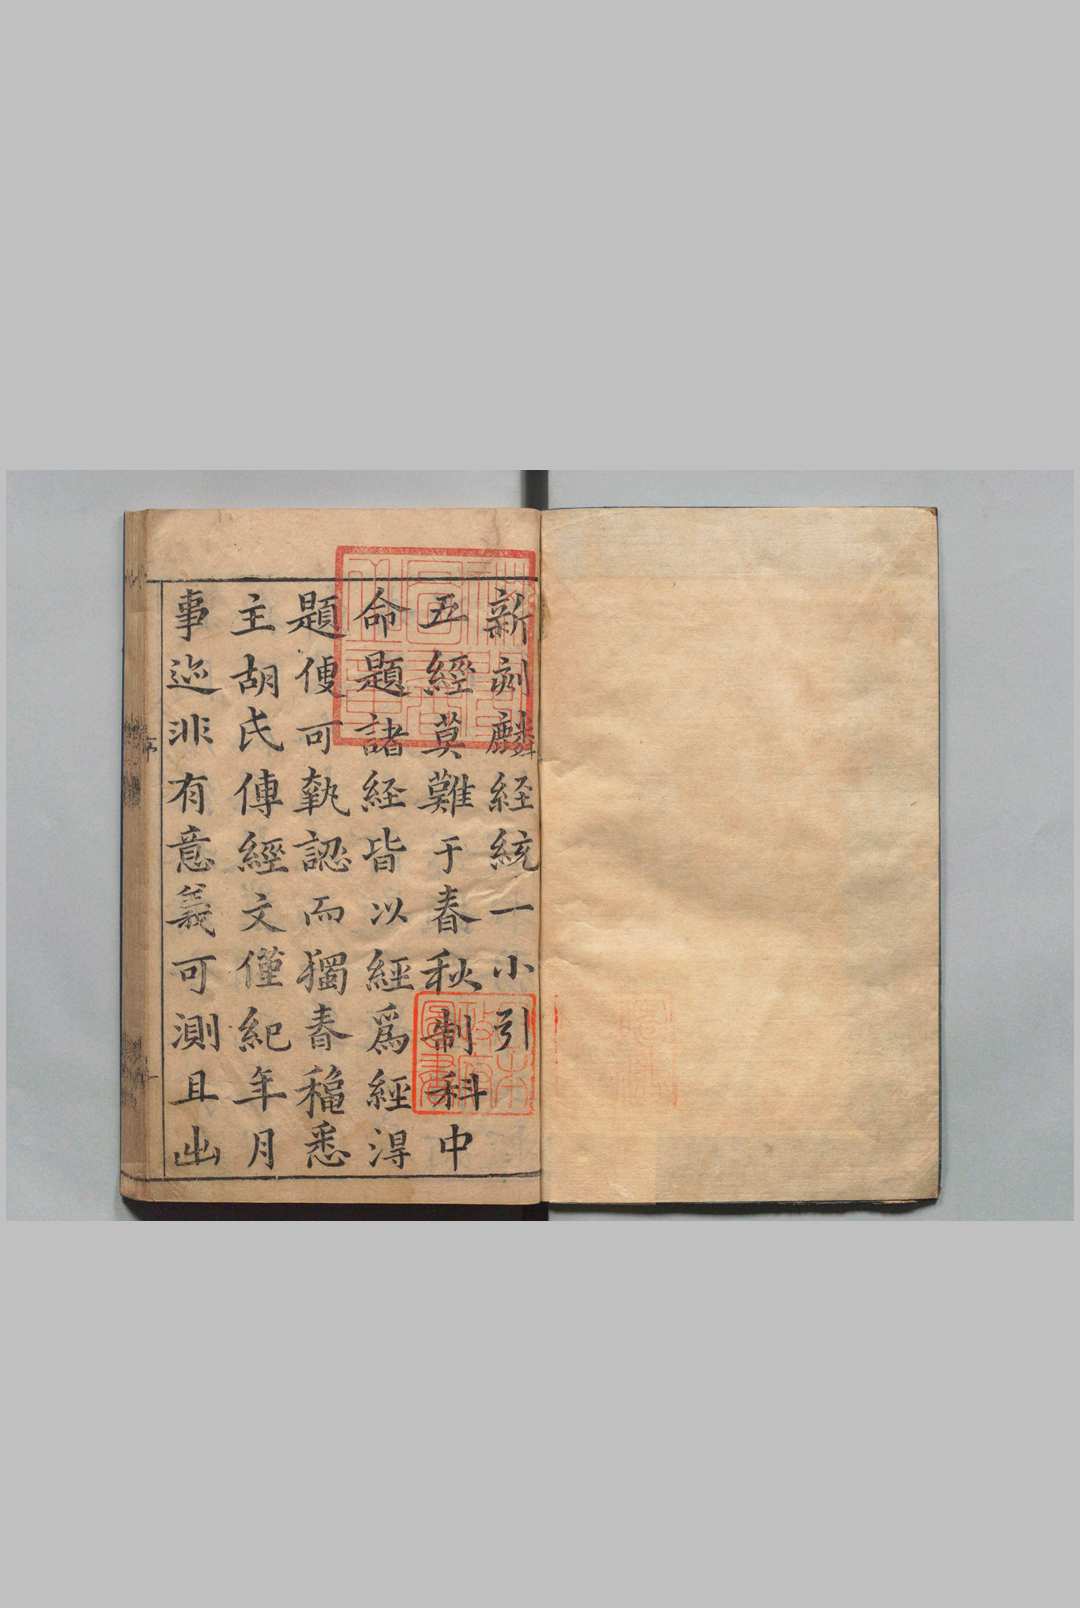 新刻麟経統一小引
五經莫難于春秋制科中
命題諸経皆以經爲經淂
題便可執認而獨春穐悉
主胡氏傳經文僅紀年月
事迹非有意義可測且出
序
一